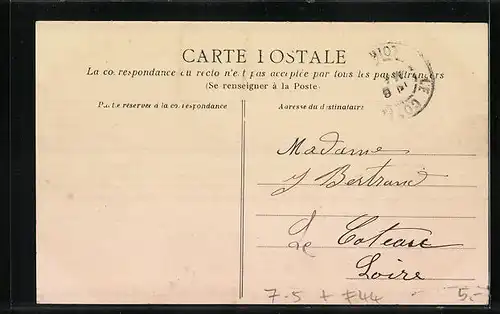 CARTE POSTALE
La correspondance au recto n'est pas acceptée par tous les pays étrangers
(Se renseigner à la Poste)
Partie réservée à la correspondance
Adresse du destinataire
Madame
J Bertrand
Le Coteau
Loire
7-5 + F44
5.-